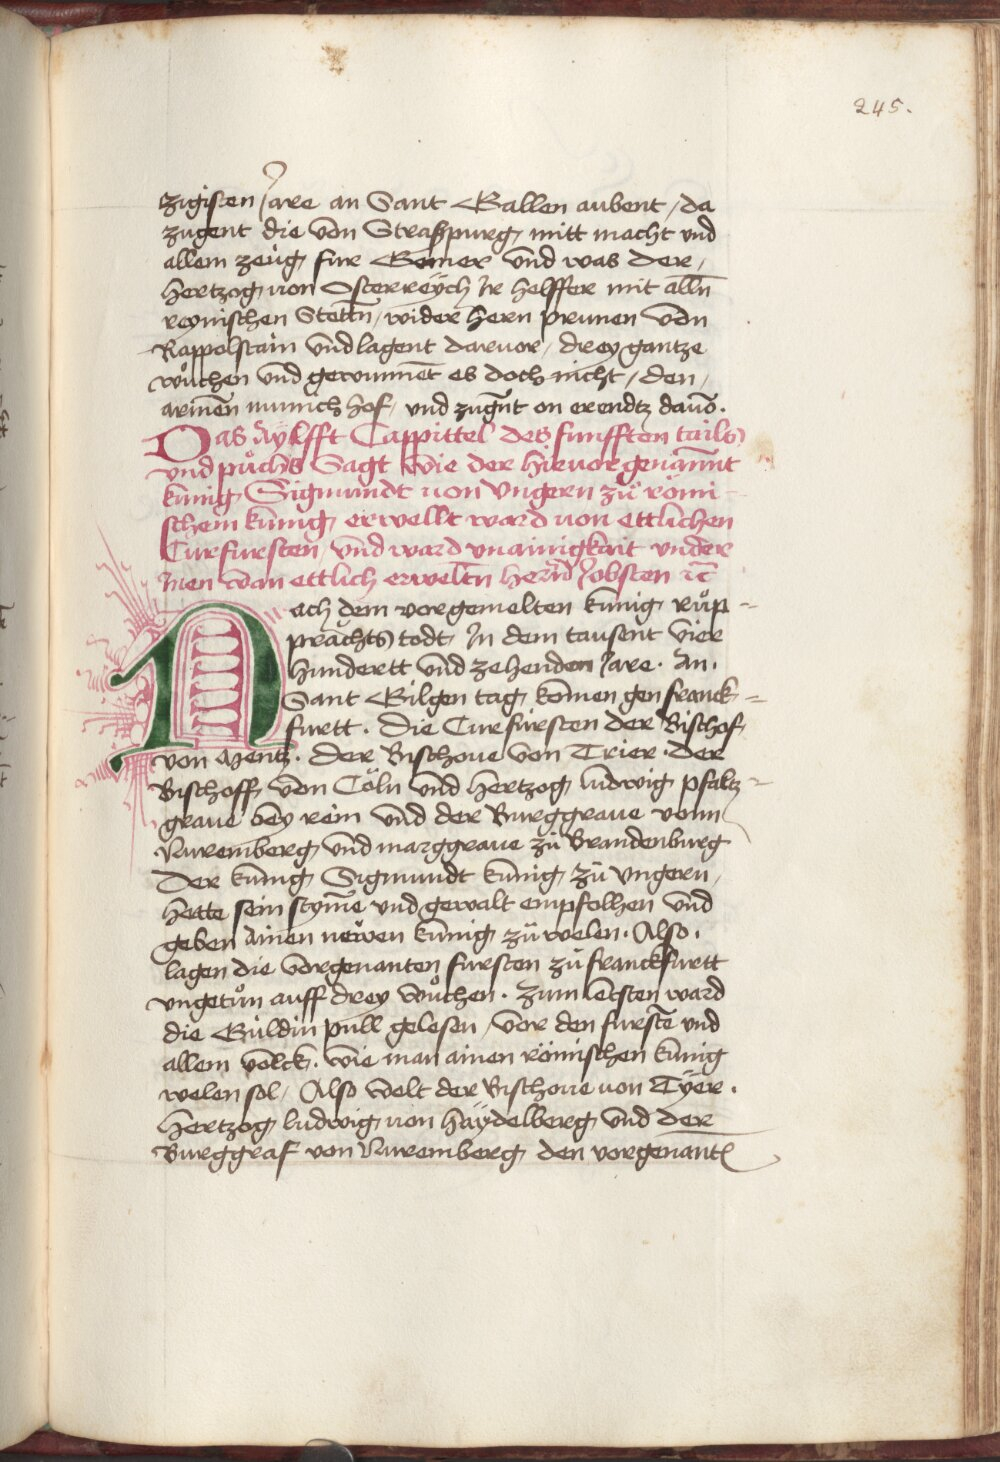 245.
zigisten Jare an Sant Gallen aubent / da
zugent die von Straszpurg mitt macht vnd
allem zeüg fur Gemer vnd was der /
hertzog von Österreÿch Ir helffer mit alln̄
reynischen Stettn̄ / wider hern prunen von
Rappolstain vnd lagent daruor / drey gantze
wůchen vnd gewunnēt es doch nicht / den /
armēn munich hof / vnd zugn̄t on erendtz dauō .
Das Aÿlfft Cappittel des funfften tails
vnd půchs Sagt wie der hieuor genannt
kunig Sigmundt von Vngern zů römi -
schem kunig erwellt ward von ettlichen
Curfursten / vnd ward vnainigkait vnder
Inen wan ettlich erweltn̄ herñ Jobsten ⁊c̄
Nach dem vorgemelten kunig růp -
prächts todt In dem tausent vier
hundertt vnd zehenden Jare . An .
Sant Gilgen tag komen gen franck -
furtt . die Curfürsten der Bischof
von Mentz . der Bischoue von Trier . der
Bischoff von Cöln vnd hertzog ludwig pfaltz -
graue bey rein vnd der Burggraue vonn
Nuremberg vnd marggraue zů Brandenburg
der kunig Sigmundt kunig zů vngern /
hette sein stym̄e vnd gewalt empfolhen vnd
geben Ainen newen kunig zů welen . Also .
lagen die vorgenanten fursten zů franckfurtt
vngetůn auff drey wůchen . zum letsten ward
die Guldin pull gelesen / vor den furstē vnd
allem volck . wie man ainen römischen kunig
welen sol / Also welt der Bischoue von Tÿer .
hertzog ludwig von haÿdelberg vnd der
Burggraf von Nuremberg den vorgenantn̄